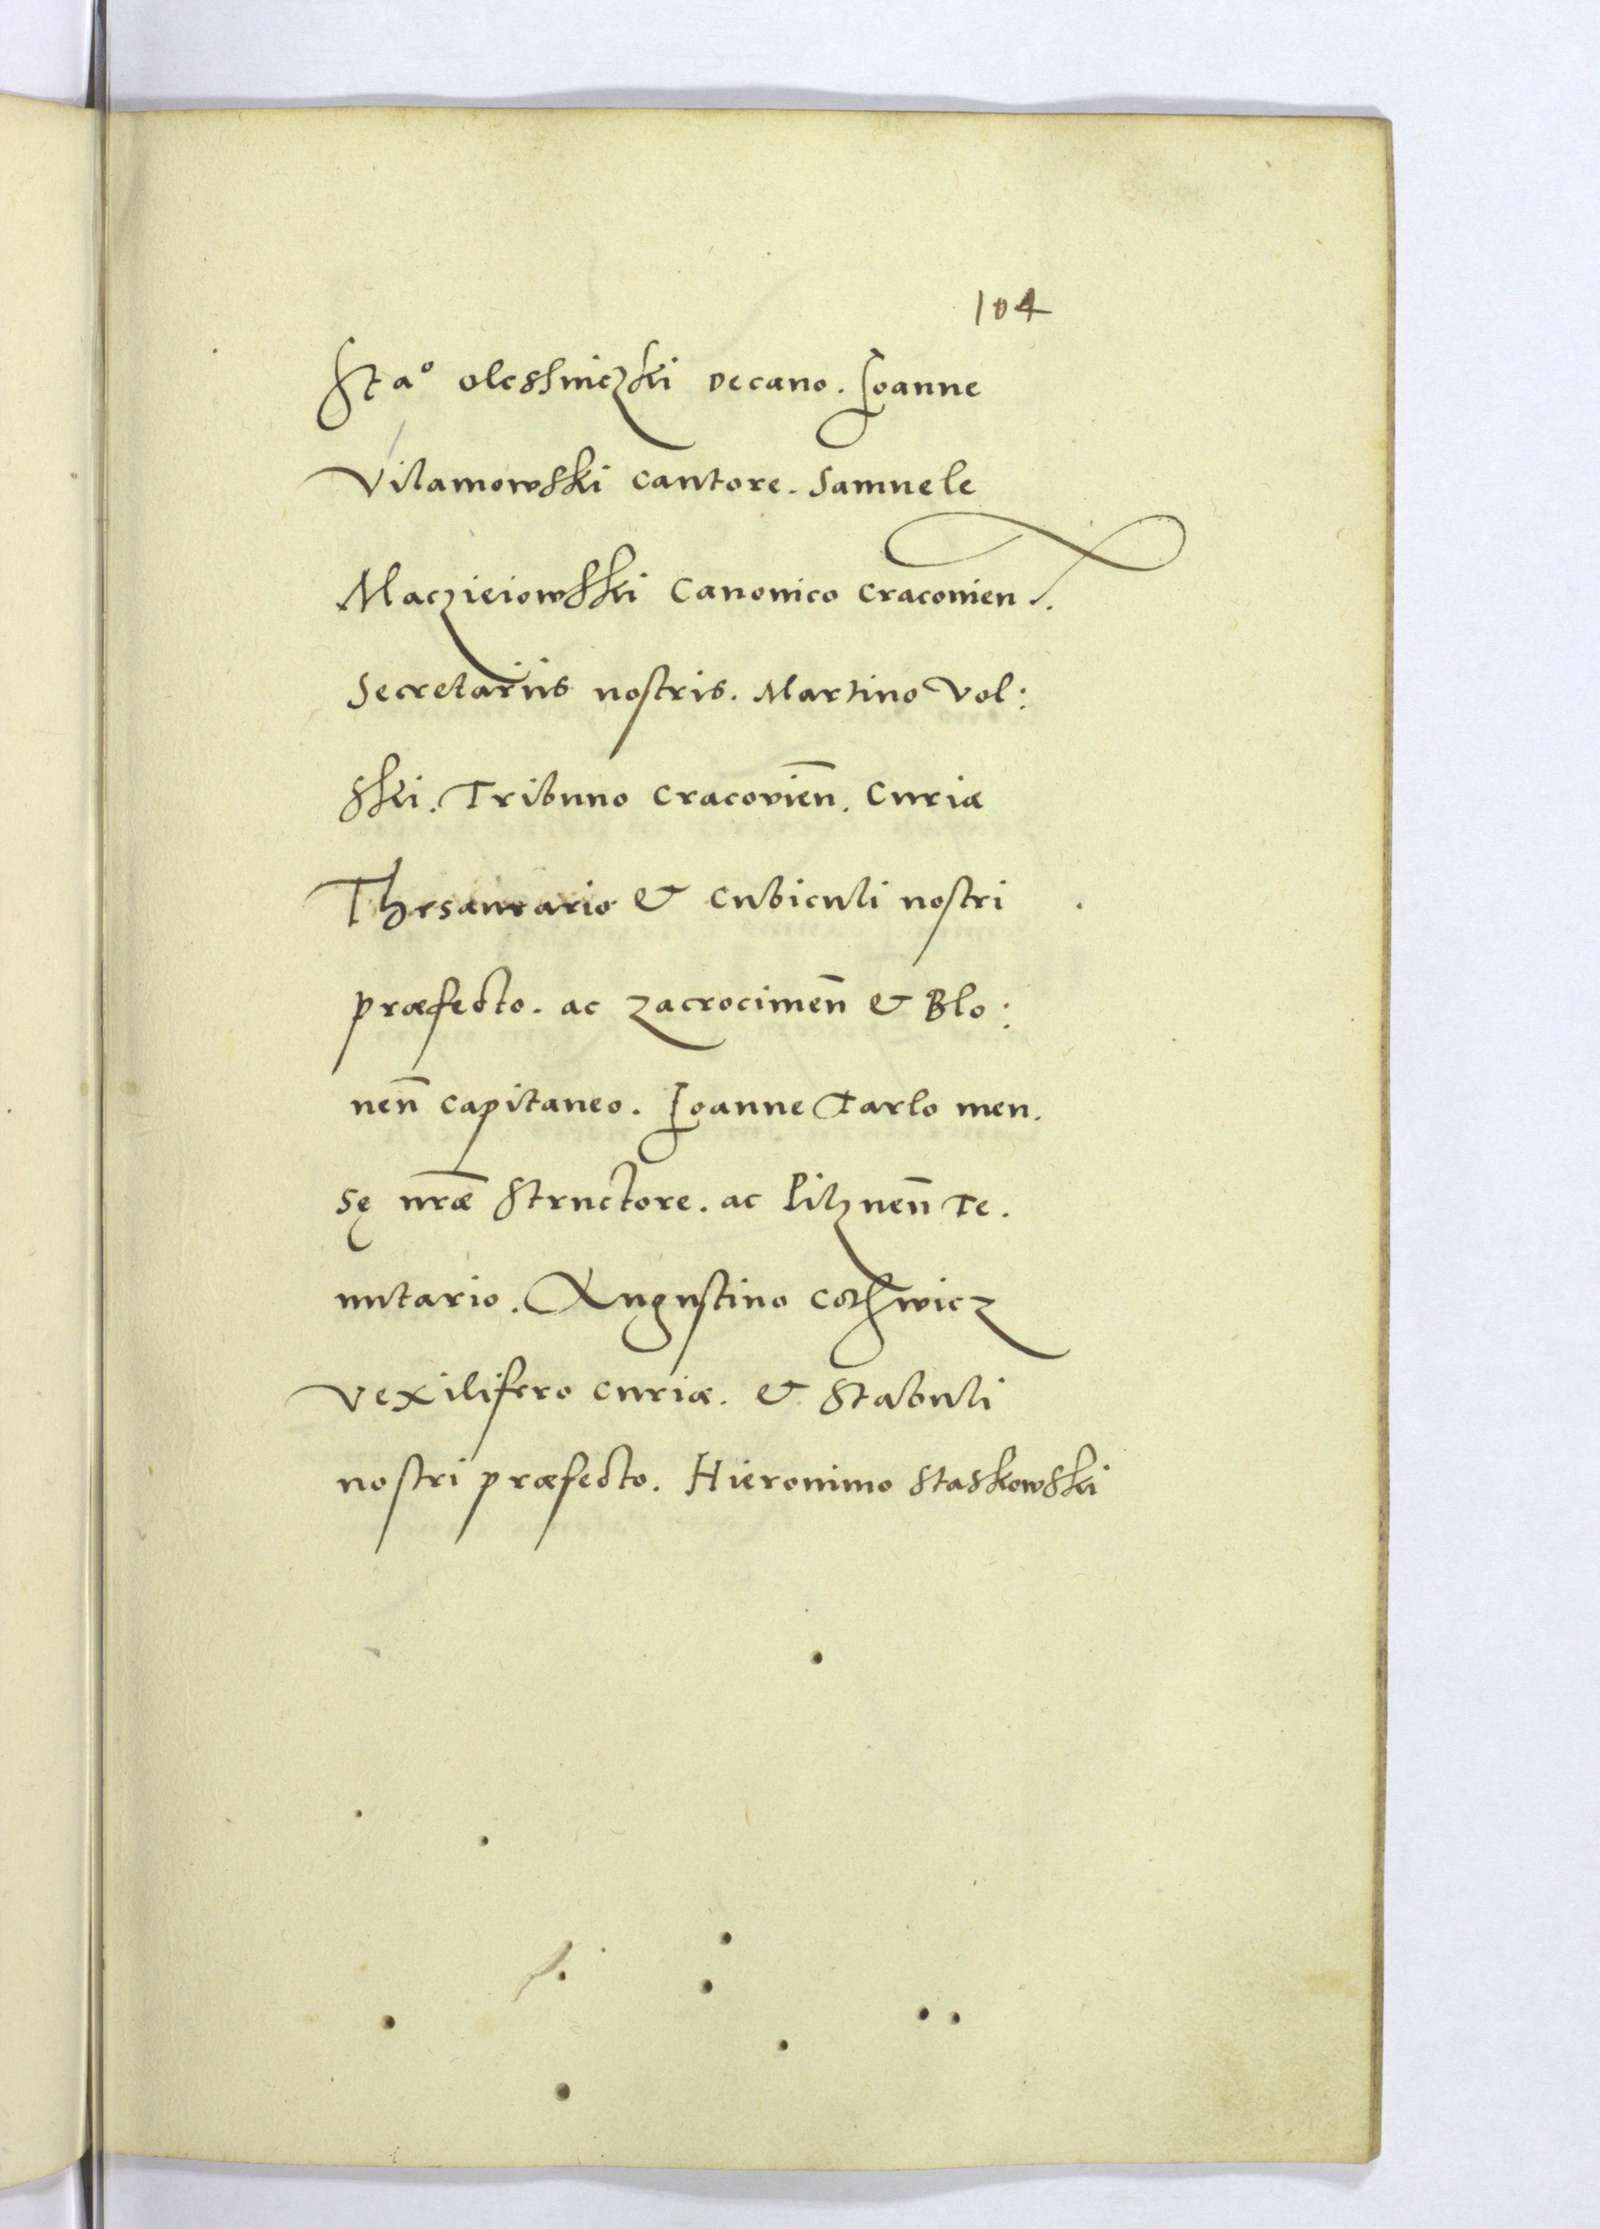 104
Staº olesshniczki Decano. Ioanne
Vilamowski cantore. Samuele
Maczieiowsski Canonico cracouien.
Secretariis nostris. Martino Vol:
sski. Tribuno cracovieñ. Curiæ
Thesaurario & cubiculi nostri
præfecto. ac zacrocimeñ & Blo:
neñ capitaneo. Ioanne Tarlo men.
sę nr̃æ Structore. ac Pilzneñ Te.
nutario. Augustino cothwicz
vexilifero curiæ. & Stabuli
nostri præfecto. Hieronimo Staskowski